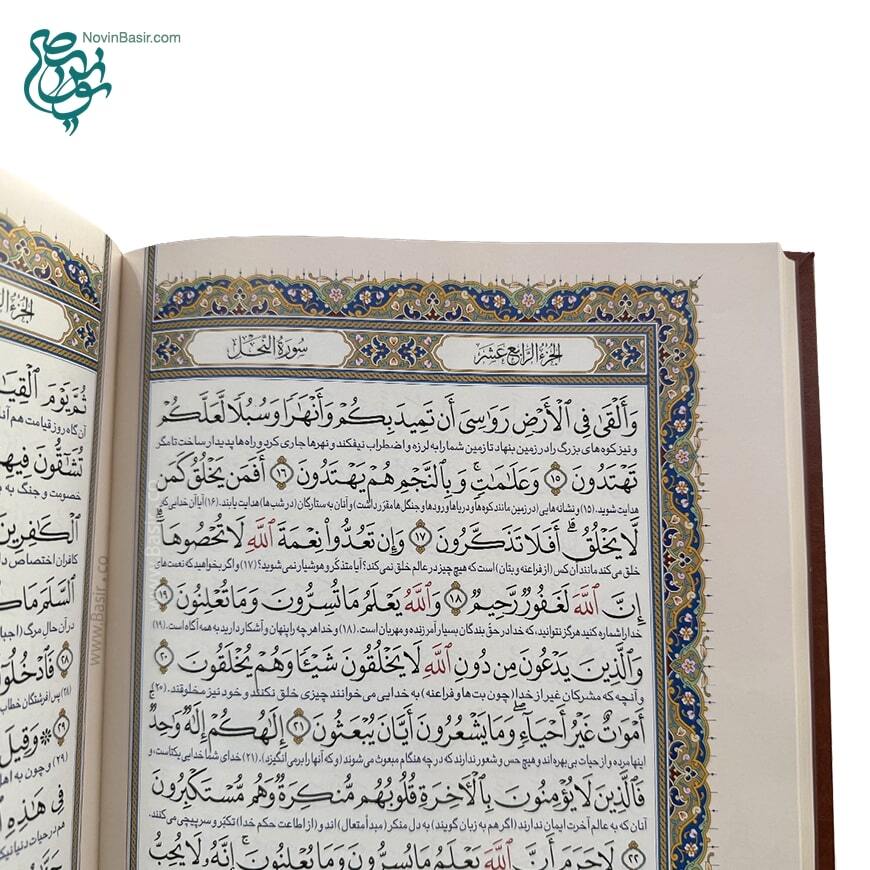 NovinBasir.com
الجزء الرابع عشر
سورة النحل
وَأَلْقَىٰ فِي ٱلْأَرْضِ رَوَاسِيَ أَن تَمِيدَ بِكُمْ وَأَنْهَـٰرًا وَسُبُلًا لَّعَلَّكُمْ
و نیز کوه‌های بزرگ را در زمین بنهاد تا زمین شما را به لرزه و اضطراب نیفکند و نهرها جاری کرد و راه‌ها پدیدار ساخت تا مگر
تَهْتَدُونَ ۝١٥ وَعَلَـٰمَـٰتٍ ۚ وَبِٱلنَّجْمِ هُمْ يَهْتَدُونَ ۝١٦ أَفَمَن يَخْلُقُ كَمَن
هدایت شوید. (۱۵) و نشانه‌هایی (در زمین مانند کوه‌ها و دریاها و رودها و جنگل‌ها مقرر داشت) و آنان به ستارگان (در شب‌ها) هدایت یابند. (۱۶) آیا آن خدایی که
لَّا يَخْلُقُ ۗ أَفَلَا تَذَكَّرُونَ ۝١٧ وَإِن تَعُدُّوا۟ نِعْمَةَ ٱللَّهِ لَا تُحْصُوهَآ ۗ
خلق می‌کند مانند آن کس (از فراعنه و بتان) است که هیچ چیز در عالم خلق نمی‌کند؟ آیا متذکر و هوشیار نمی‌شوید؟ (۱۷) و اگر بخواهید که نعمت‌های
إِنَّ ٱللَّهَ لَغَفُورٌ رَّحِيمٌ ۝١٨ وَٱللَّهُ يَعْلَمُ مَا تُسِرُّونَ وَمَا تُعْلِنُونَ ۝١٩
خدا را شماره کنید هرگز نتوانید، که خدا در حق بندگان بسیار آمرزنده و مهربان است. (۱۸) و خدا هر چه را پنهان و آشکار دارید به همه آگاه است. (۱۹)
وَٱلَّذِينَ يَدْعُونَ مِن دُونِ ٱللَّهِ لَا يَخْلُقُونَ شَيْـًٔا وَهُمْ يُخْلَقُونَ ۝٢٠
و آنچه که مشرکان غیر از خدا (چون بت‌ها و فراعنه) به خدایی می‌خوانند چیزی خلق نکنند و خود نیز مخلوقند. (۲۰)
أَمْوَٰتٌ غَيْرُ أَحْيَآءٍ ۖ وَمَا يَشْعُرُونَ أَيَّانَ يُبْعَثُونَ ۝٢١ إِلَـٰهُكُمْ إِلَـٰهٌ وَٰحِدٌ ۚ
اینها مرده و از حیات بی‌بهره‌اند و هیچ حس و شعور ندارند که در چه هنگام مبعوث می‌شوند (و که آنها را برمی‌انگیزد). (۲۱) خدای شما خدایی یکتاست، و
فَٱلَّذِينَ لَا يُؤْمِنُونَ بِٱلْـَٔاخِرَةِ قُلُوبُهُم مُّنكِرَةٌ وَهُم مُّسْتَكْبِرُونَ
آنان که به عالم آخرت ایمان ندارند (اگر هم به زبان گویند) به دل منکر (مبدأ متعال) اند و (از اطاعت حکم خدا) تکبر و سرپیچی می‌کنند.
۝٢٢ لَا جَرَمَ أَنَّ ٱللَّهَ يَعْلَمُ مَا يُسِرُّونَ وَمَا يُعْلِنُونَ ۚ إِنَّهُۥ لَا يُحِبُّ
ثُمَّ يَوْمَ ٱلْقِيَـ
آن گاه روز قیامت هم
تُشَـٰٓقُّونَ فِيهِ
خصومت و جنگ به
ٱلْكَـٰفِرِينَ
کافران اختصاص
ٱلسَّلَمَ مَا
در آن حال مرگ
۝٢٨ فَٱدْخُلُوٓا۟
(۲۸) پس فرشتگان خطاب
۝٢٩ ۞ وَقِيلَ
(۲۹) و چون به اهل
فِى هَـٰذِهِ
هم در حیات دنیا نیکو
www.Basir.co